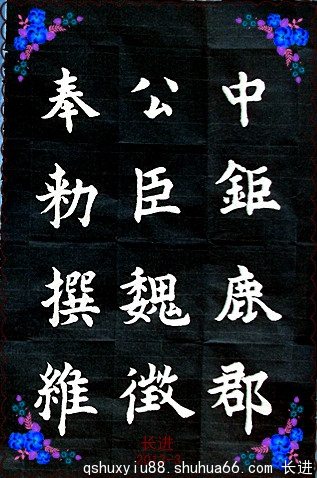 中鉅鹿郡
公臣魏徵
奉勑撰維
长进
qshuxyiu88.shuhua66.com 长进